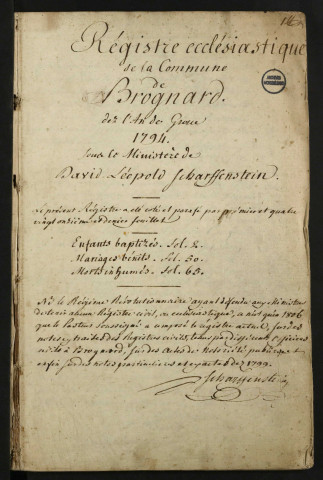 Régistre ecclésiastique
de la Commune
de
Brognard.
dez l'An de Grace
1794.
sous le Ministère de
David Léopold Scharffenstein.
Le présent Régistre a été coté et parafé par premier et quatre
vingt onzième et dernier feuillet.
Enfants baptizés. Fol. 2.
Mariages bénits. Fol. 50.
Morts inhumés. Fol. 65.
NB. le Régime Révolutionnaire ayant défendu aux Ministres
de tenir aucun Régistre civil, ou ecclésiastique, ce n'est qu'en 1806
que le Pasteur soussigné a composé le registre actuel, sur des
notes extraites des Régistres civils, tenus par différents officiers
civils à Brognard, sur des Actes de Notoriété publique et
enfin sur des notes particulières et exactes dez 1794.
Scharffenstein